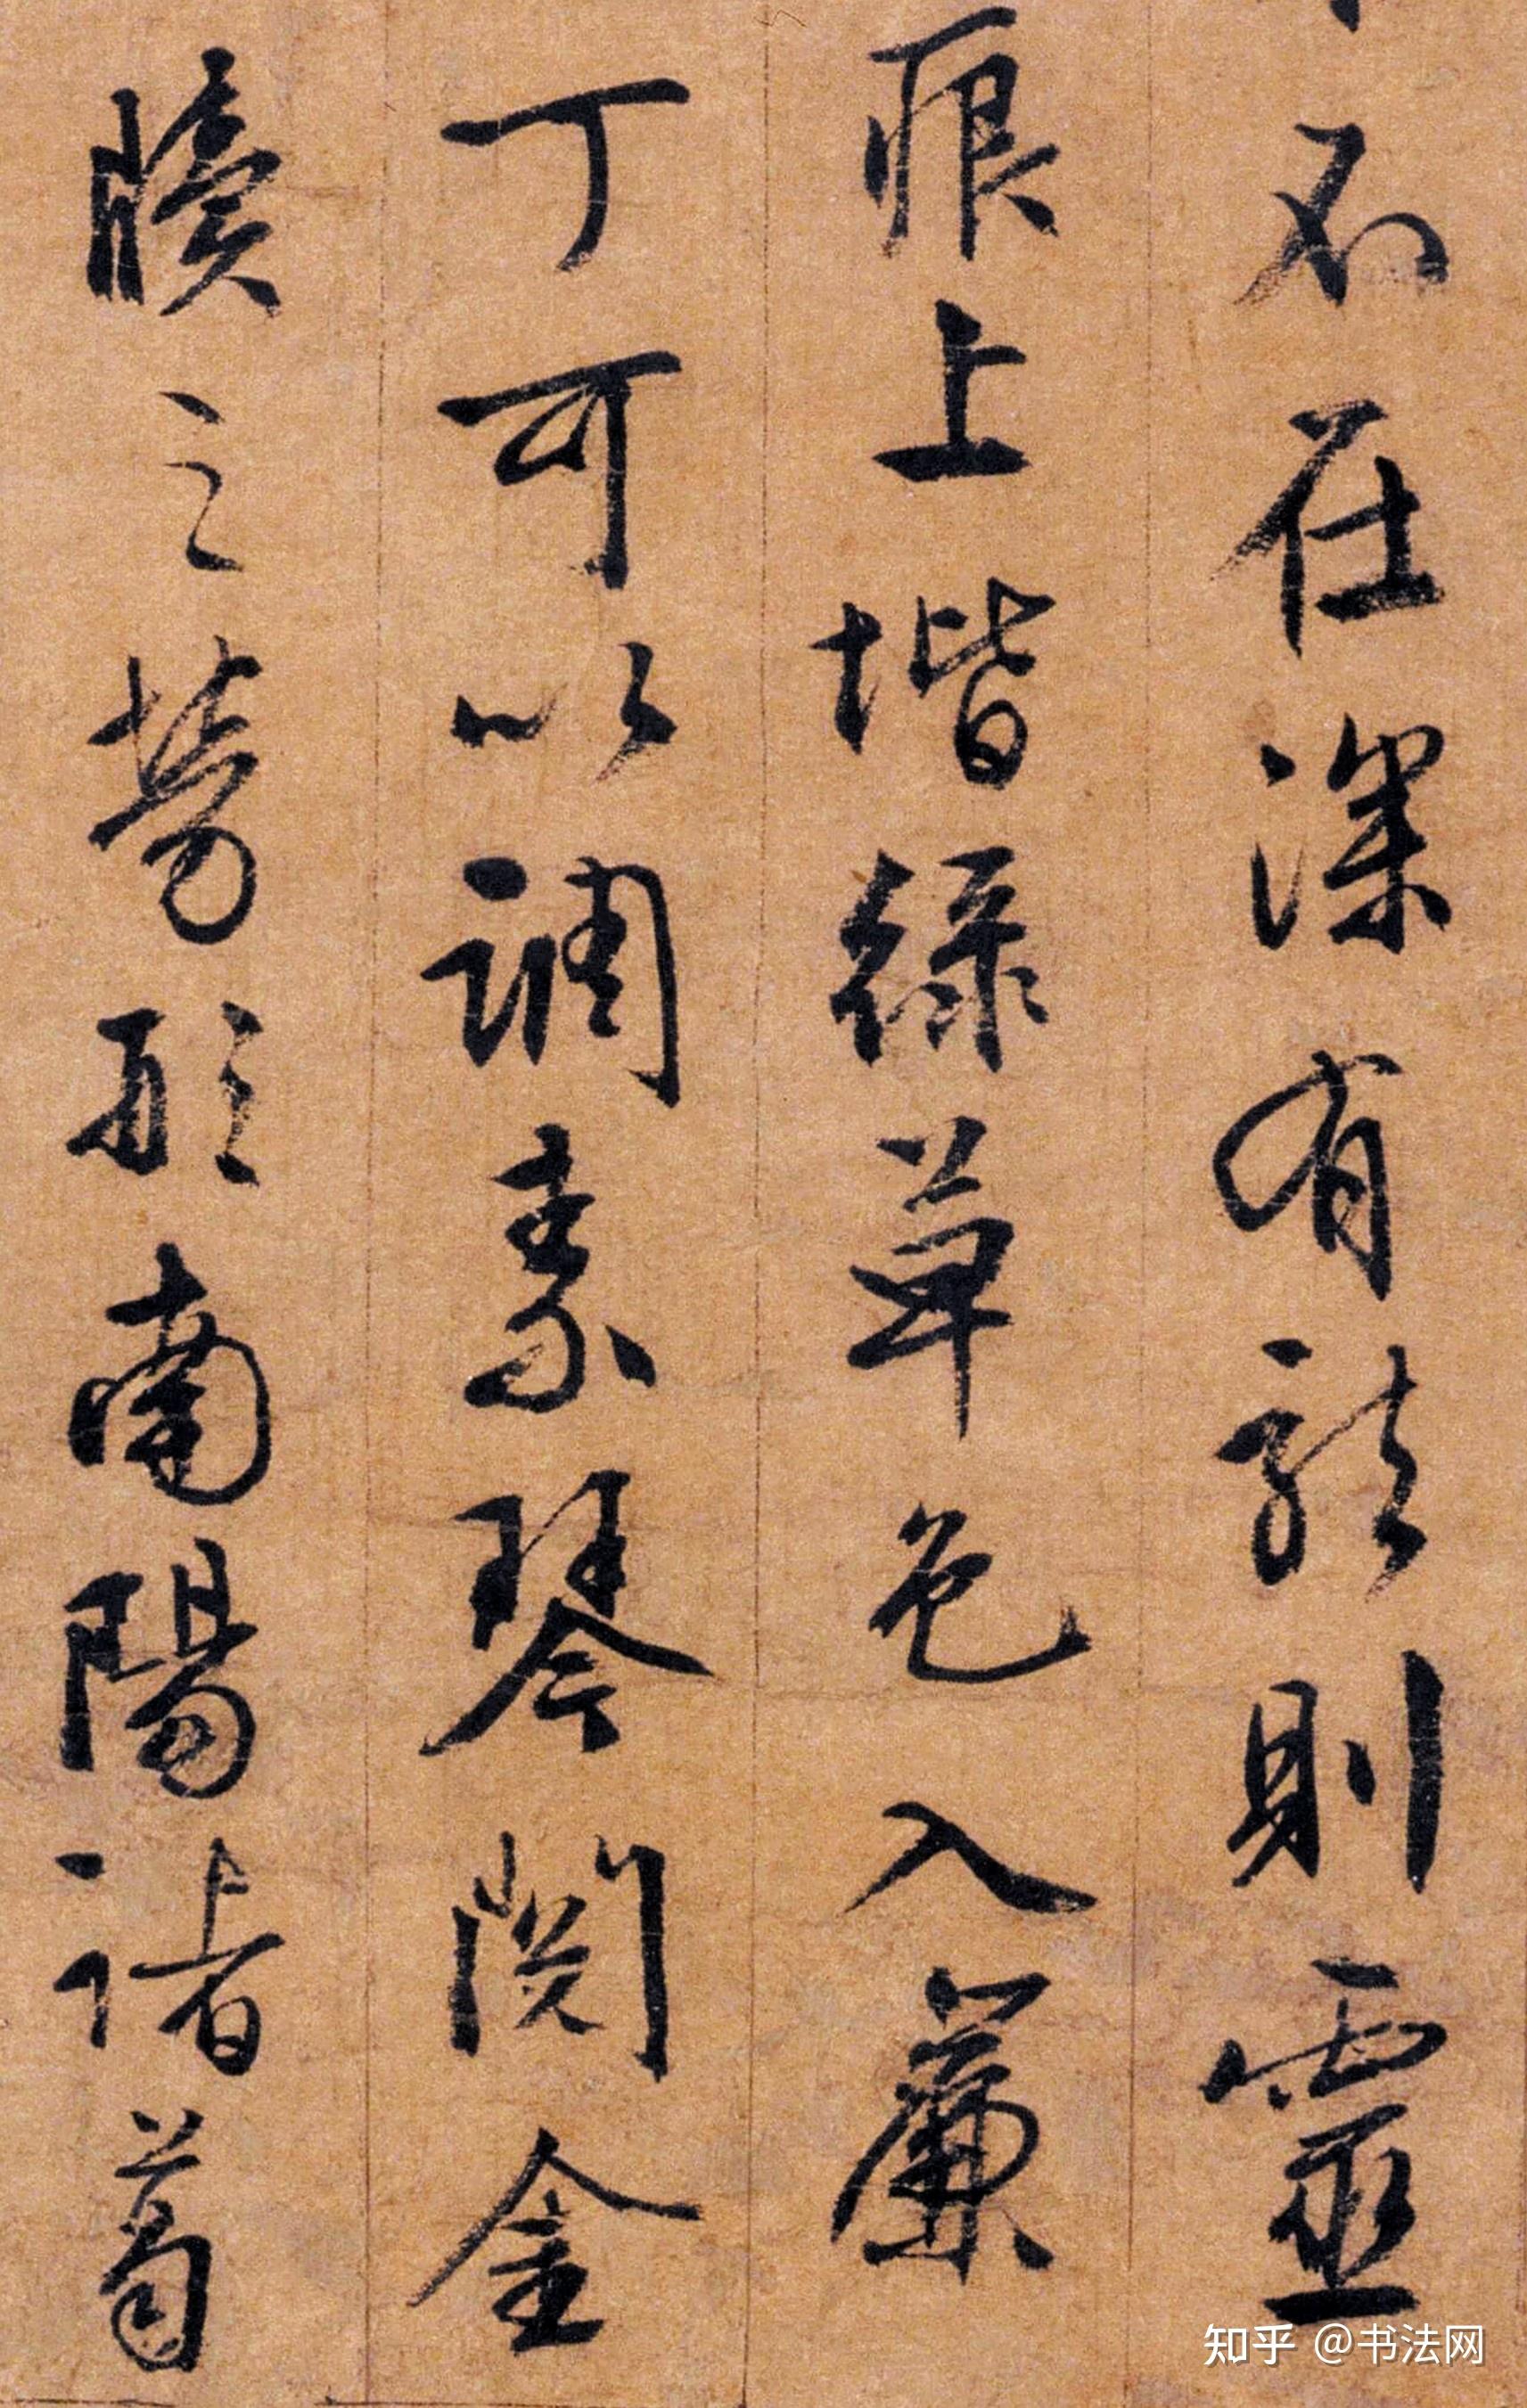 不在深有龍則靈
痕上堦綠草色入簾
丁可以調素琴閱金
牘之勞形南陽諸葛
知乎 @书法网